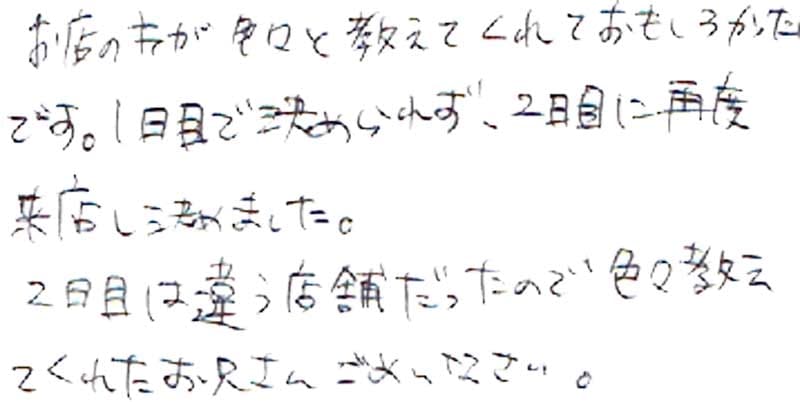 お店の方が色々と教えてくれておもしろかった
です。1日目で決められず、2日目に再度
来店し決めました。
2日目は違う店舗だったので色々教え
てくれたお兄さんごめんなさい。